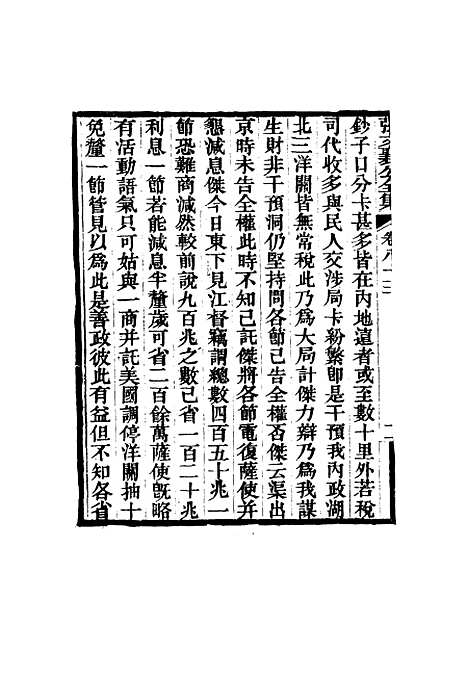 張文襄公全集 卷八十三 二
鈔子口分卡甚多皆在內地遠者或至數十里外若稅
司代收多與民人交涉局卡紛繁卽是干預我內政湖
北三洋關皆無常稅此乃爲大局計傑力辯乃爲我謀
生財非干預洞仍堅持問各節已告全權否傑云渠出
京時未告全權此時不知已託傑將各節電復薩使并
懇減息傑今日東下見江督竊謂總數四百五十兆一
節恐難商減然較前說九百兆之數已省一百二十兆
利息一節若能減息半釐歲可省二百餘萬薩使旣略
有活動語氣只可姑與一商并託美國調停洋關抽十
免釐一節管見以爲此是善政彼此有益但不知各省